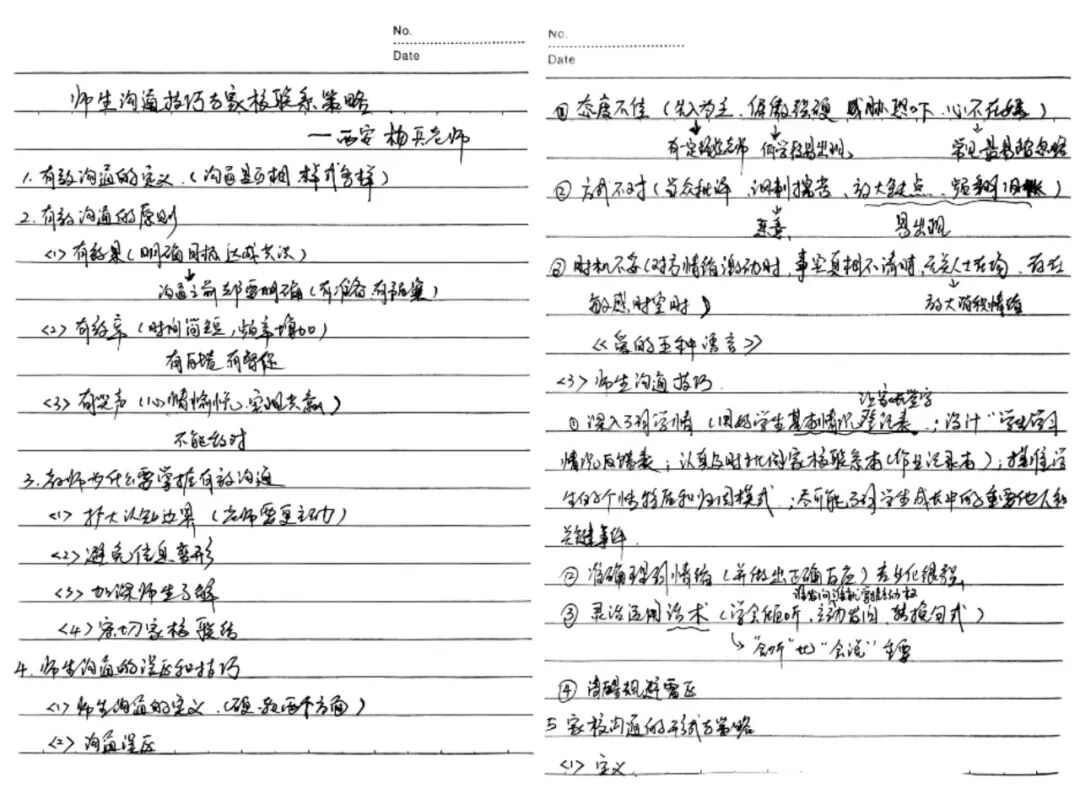 No.
Date
师生沟通技巧与家校联系策略
——西安 杨兵老师
1. 有效沟通的定义 (沟通是否相 样式多样)
2. 有效沟通的原则
<1> 有效果 (明确目标 达成共识)
沟通之前都要明确 (有准备 有预案)
<2> 有效率 (时间简短, 频率增加)
<3> 有笑声 (心情愉悦, 实现共赢)
不能绝对
3. 教师为什么要掌握有效沟通
<1> 扩大认知边界 (老师需更主动)
<2> 避免信息变形
<3> 加深师生了解
<4> 密切家校联结
4. 师生沟通的误区和技巧
<1> 师生沟通的定义 (硬、软两个方面)
<2> 沟通误区
No.
Date
① 态度不佳 (先入为主、傲慢强硬、威胁恐吓、心不在焉)
低学段易出现 常见最易被忽略
② 方式不对 (当众批评、讽刺挖苦、放大缺点、频翻旧账)
易出现
③ 时机不妥 (对方情绪激动时, 事实真相不清时, 无关人士在场, 存在
敏感时空时) 放大消极情绪
《爱的五种语言》
<3> 师生沟通技巧
让家长签字
① 深入了解学情 (用好学生基本情况登记表; 设计“学生学习
情况反馈表; 认真与时批阅家校联系本 (作业记录本); 摸准学
生的个性特征和归因模式; 尽可能了解学生成长中的重要他人和
关键事件
② 准确理解情绪 (并做出正确反应) 专业化很强
③ 灵活运用话术 (学会倾听、主动发问、转换句式)
“会听”比“会说”重要
④ 清醒规避雷区
5 家校沟通的形式与策略
<1> 定义